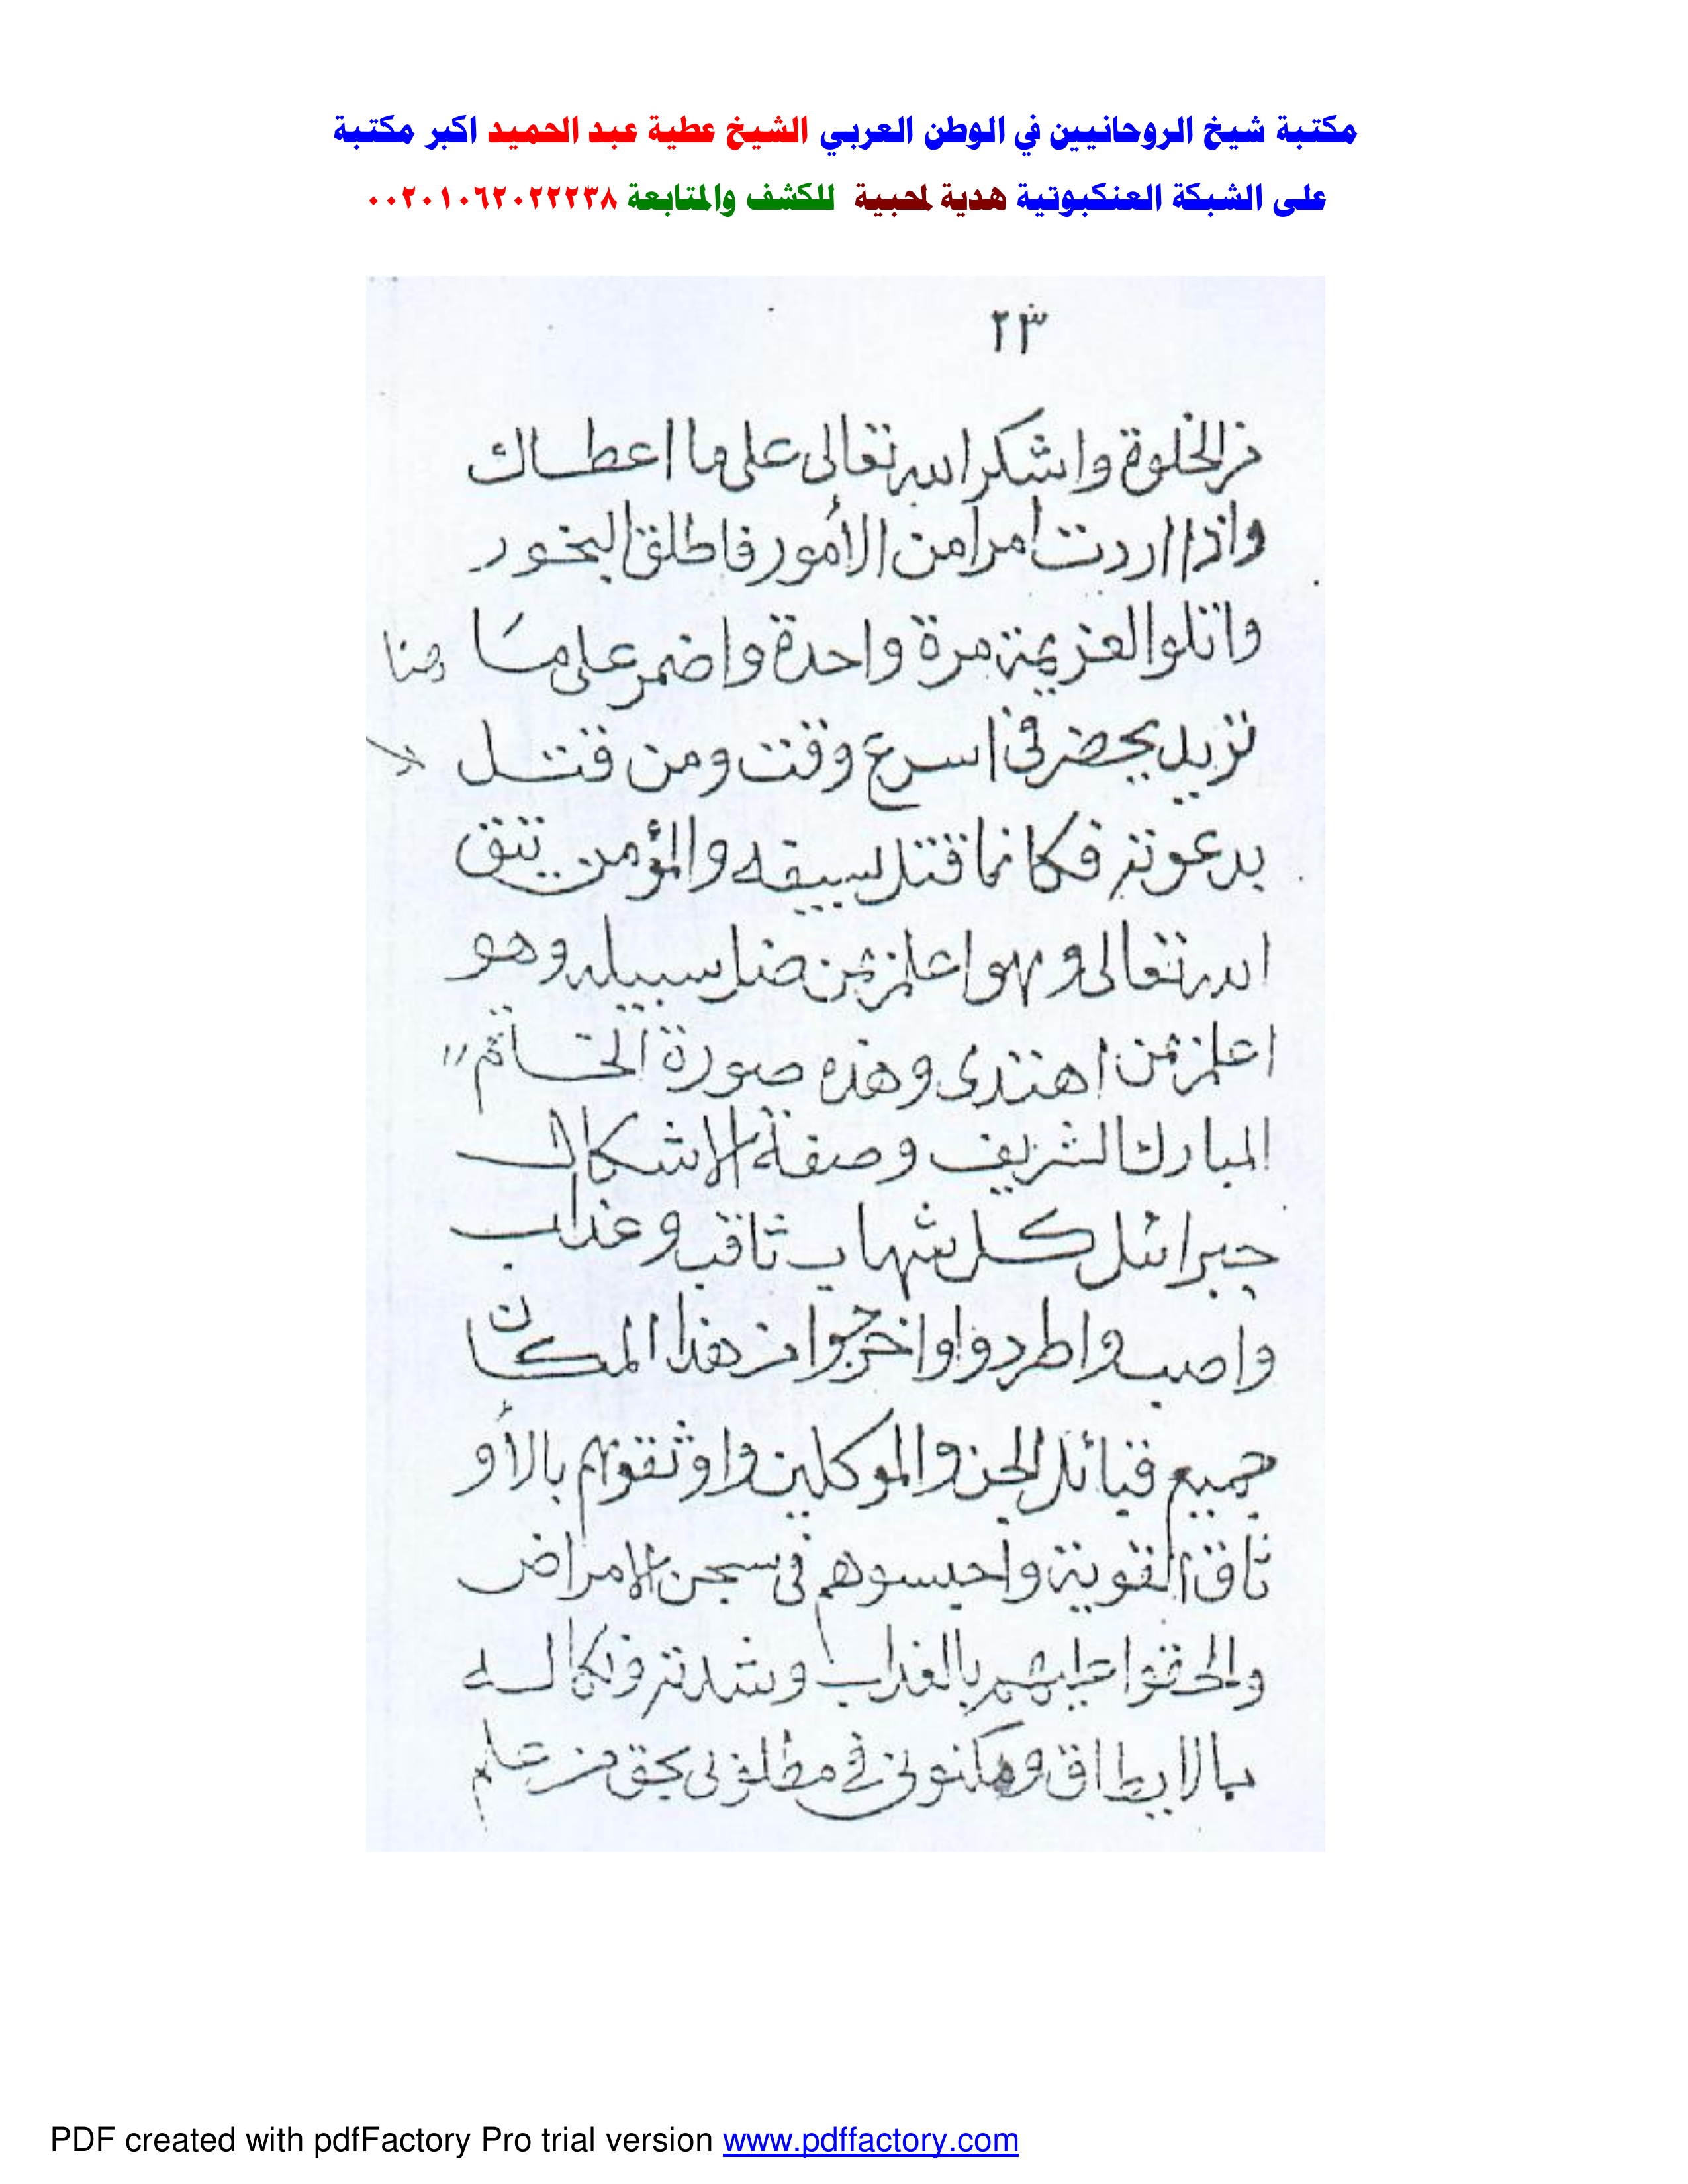 مكتبة شيخ الروحانيين في الوطن العربي الشيخ عطية عبد الحميد اكبر مكتبة
على الشبكة العنكبوتية هدية لمحبية للكشف والمتابعة ٠٠٢٠١٠٦٢٠٢٢٢٣٨
٢٣
من الخلوة واشكر الله تعالى على ما اعطاك
واذا اردت امرا من الأمور فاطلق البخور
واتلوا العزيمة مرة واحدة واضمر على ما هنا
تريد يحضر في اسرع وقت ومن قتل
بدعوته فكانما قتل بسيفه والمؤمن يتق
الله تعالى وهوا علم بمن ضل سبيله وهو
اعلم بمن اهتدى وهذه صورة الخاتم
المبارك الشريف وصفة الاشكال
جبرائل كل شهاب ثاقب وعذاب
واصب واطردوا واخرجوا من هذا المكان
جميع قبائل الجن والموكلين واوثقوهم بالأو
ثاق القوية واحبسوهم في سجن الامراض
والحقوا عليهم بالعذاب وشدته ونكاله
بالا ومكنوني في مطلوبى بحق من علم
PDF created with pdfFactory Pro trial version www.pdffactory.com